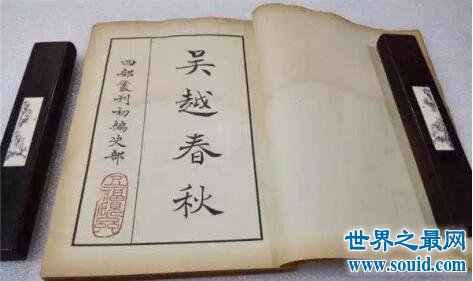 吴越春秋
四部叢刊初編史部
世界之最网
www.souid.com